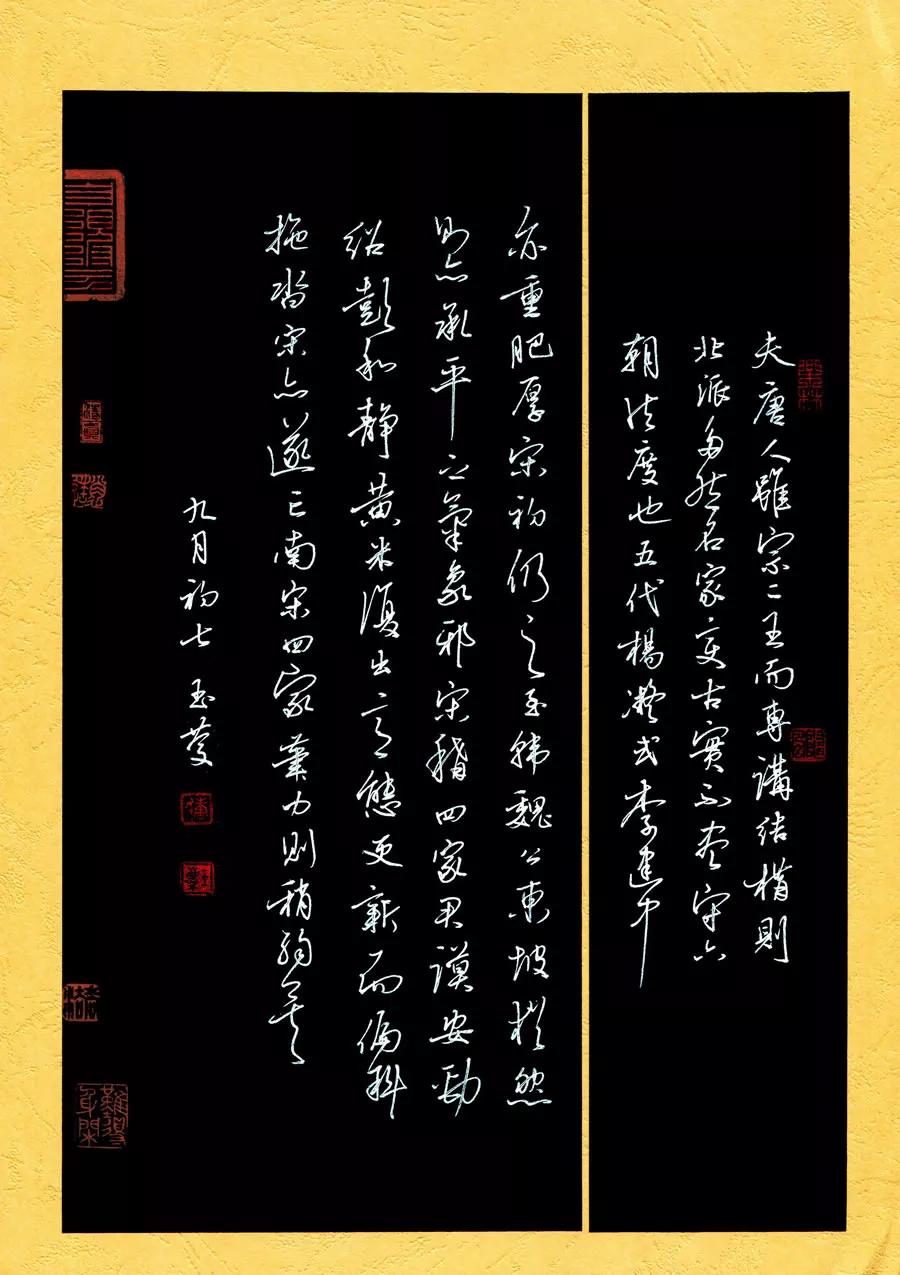 夫唐人雖宗二王而專講結構則
北派多然名家变古實不盡守六
朝法度也五代楊凝式李建中
亦重肥厚宋初仍之至韩魏公東坡猶然
則亦承平之氣象邪宋稱四家君謨安勁
紹彭和靜黃米復出意態更新而偏斜
拖沓宋亦遂亡南宋四家筆力則稍弱矣
九月初七玉
難得身閑